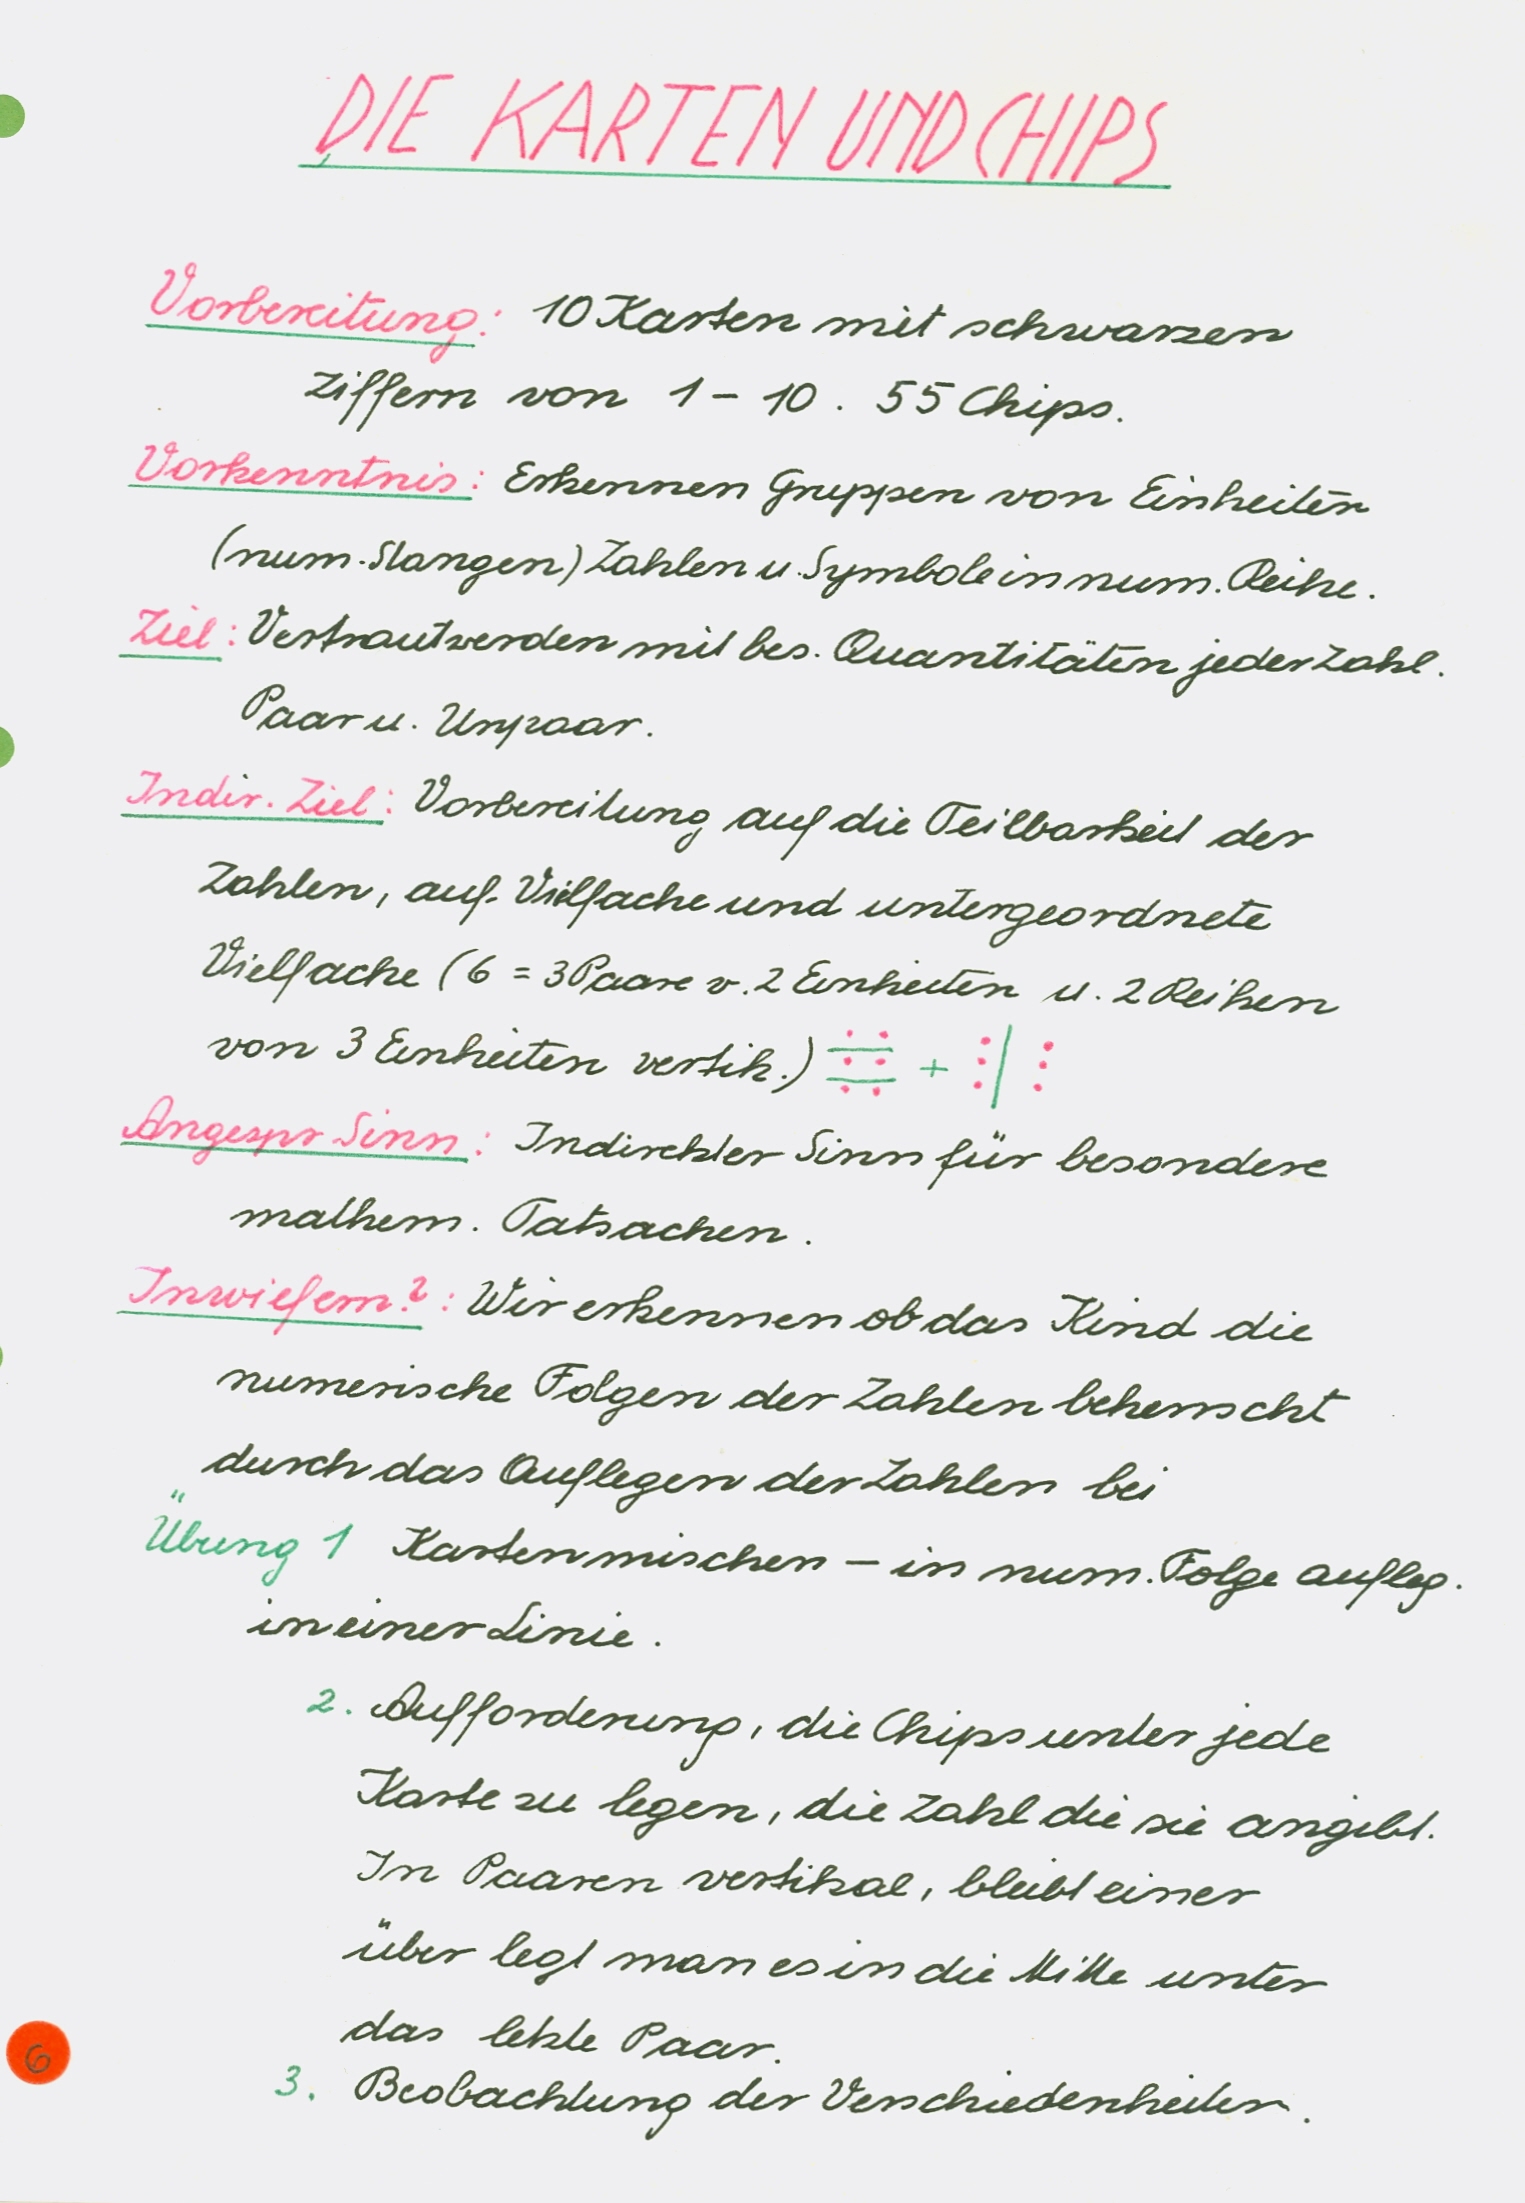 DIE KARTEN UND CHIPS
Vorbereitung: 10 Karten mit schwarzen
Ziffern von 1 - 10. 55 Chips.
Vorkenntnis: Erkennen Gruppen von Einheiten
(num. Stangen) Zahlen u. Symbole in num. Reihe.
Ziel: Vertrautwerden mit bes. Quantitäten jeder Zahl.
Paar u. Unpaar.
Indir. Ziel: Vorbereitung auf die Teilbarkeit der
Zahlen, auf Vielfache und untergeordnete
Vielfache (6 = 3 Paare v. 2 Einheiten u. 2 Reihen
von 3 Einheiten vertik.) +
Angespr Sinn: Indirekter Sinn für besondere
mathem. Tatsachen.
Inwiefern?: Wir erkennen ob das Kind die
numerische Folgen der Zahlen beherrscht
durch das Auflegen der Zahlen bei
Übung 1 Karten mischen – in num. Folge aufleg.
in einer Linie.
2. Aufforderung, die Chips unter jede
Karte zu legen, die Zahl die sie angibt.
In Paaren vertikal, bleibt einer
über legt man es in die Mitte unter
das letzte Paar.
3. Beobachtung der Verschiedenheiten.
6